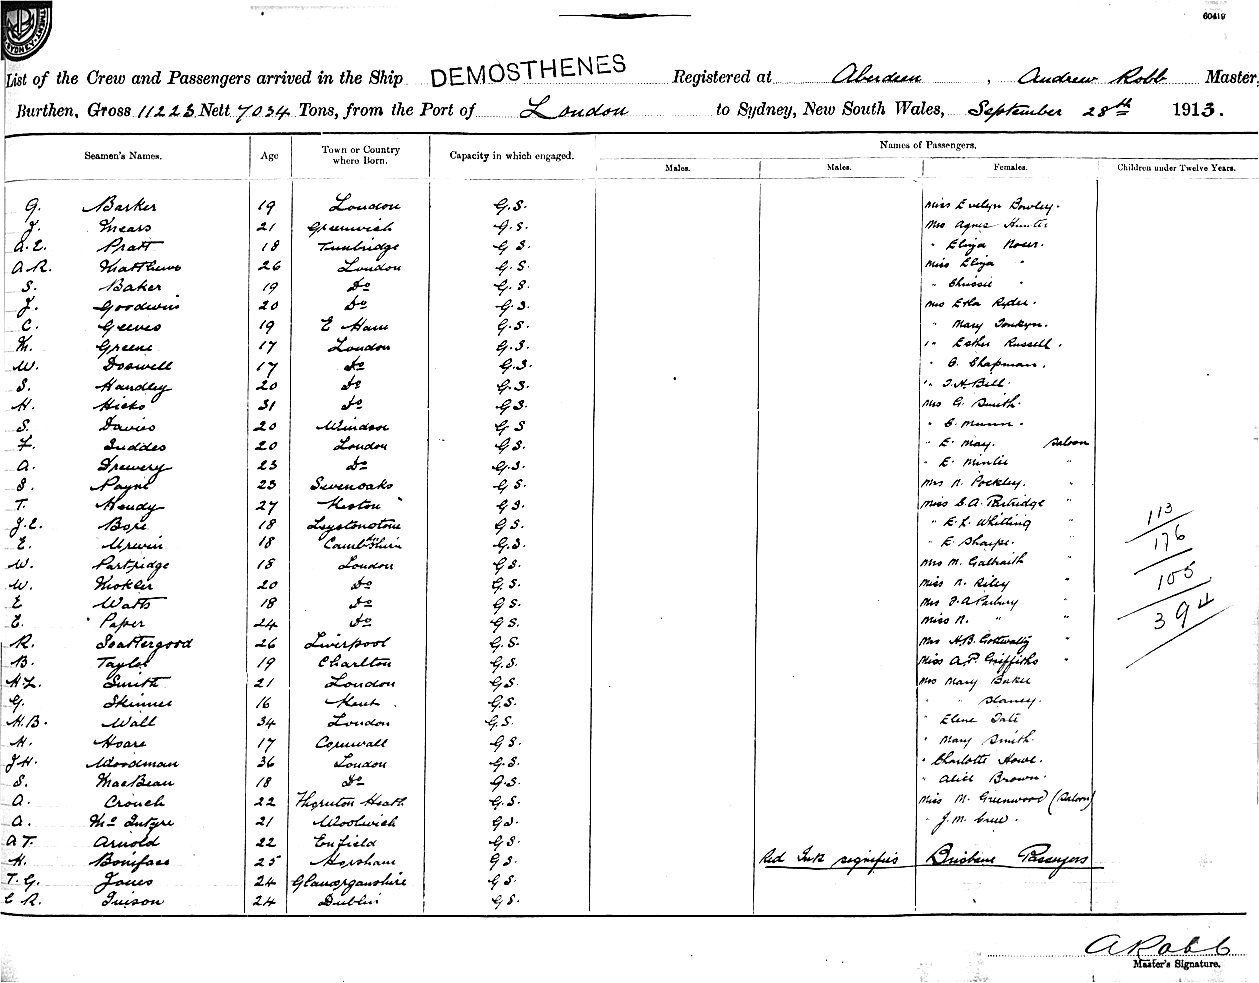 60419
List of the Crew and Passengers arrived in the Ship DEMOSTHENES Registered at Aberdeen, Andrew Robb Master,
Burthen, Gross 11223 Nett 7034 Tons, from the Port of London to Sydney, New South Wales, September 28th 1913.
Names of Passengers.
Seamen's Names. Age Town or Country where Born. Capacity in which engaged. Males. Males. Females. Children under Twelve Years.
G. Barker 19 London G.S. Miss Evelyn Bowley.
J. Mears 21 Greenwich G.S. Mrs Agnes Hunter
A.E. Pratt 18 Tunbridge G.S. " Eliza Roser.
A.R. Matthews 26 London G.S. Miss Eliza "
S. Baker 19 Do G.S. " Chrissie "
J. Goodwin 20 Do G.S. Mrs Etta Ryder.
C. Geeves 19 E Ham G.S. " Mary Tonkyn.
M. Greene 17 London G.S. " Esther Russell.
W. Doswell 17 Do G.S. " C. Chapman.
S. Handley 20 Do G.S. " J.H. Bell.
H. Hicks 31 Do G.S. Mrs G. Smith.
S. Davies 20 Windsor G.S. " C. Munn.
F. 20 London G.S. " E. May. Saloon
A. Drewery 23 Do G.S. " E. Minter "
S. Payne 23 Sevenoaks G.S. Mrs N. Pockley. "
T. Hendy 27 Heston G.S. Miss S.A. Partridge "
J.E. Bore 18 Leytonstone G.S. " E.L. Whitting "
E. Urwin 18 Cambshire G.S. " E. Sharpe. "
W. Partridge 18 London G.S. Mrs M. Galbraith "
W. 20 Do G.S. Miss N. Riley "
E Watts 18 Do G.S. Mrs F.A. Parbury "
E. Paper 24 Do G.S. Miss N. " "
R. Scattergood 26 Liverpool G.S. Mrs H.B. "
B. Taylor 19 Charlton G.S. Miss A.P. Griffiths "
H.L. Smith 21 London G.S. Mrs Mary Baker
G. Skinner 16 Kent. G.S. " " Slaney.
H.B. Wall 34 London G.S. " Elene Tate
H. Hoare 17 Cornwall G.S. " Mary Smith.
J.H. Woodman 36 London G.S. " Charlotte Howe.
S. MacBean 18 Do G.S. " Alice Brown.
A. Crouch 22 Thornton Heath G.S. Miss M. Greenwood (Saloon)
A. McIntyre 21 Woolwich G.S. " J.M.
A.T. Arnold 22 Enfield G.S.
H. Boniface 25 Horsham G.S. Red Ink signifies Brisbane Passengers
T.G. Jones 24 Glamorganshire G.S.
C.R. Tuison 24 Dublin G.S.
113
176
105
394
A Robb
Master's Signature.